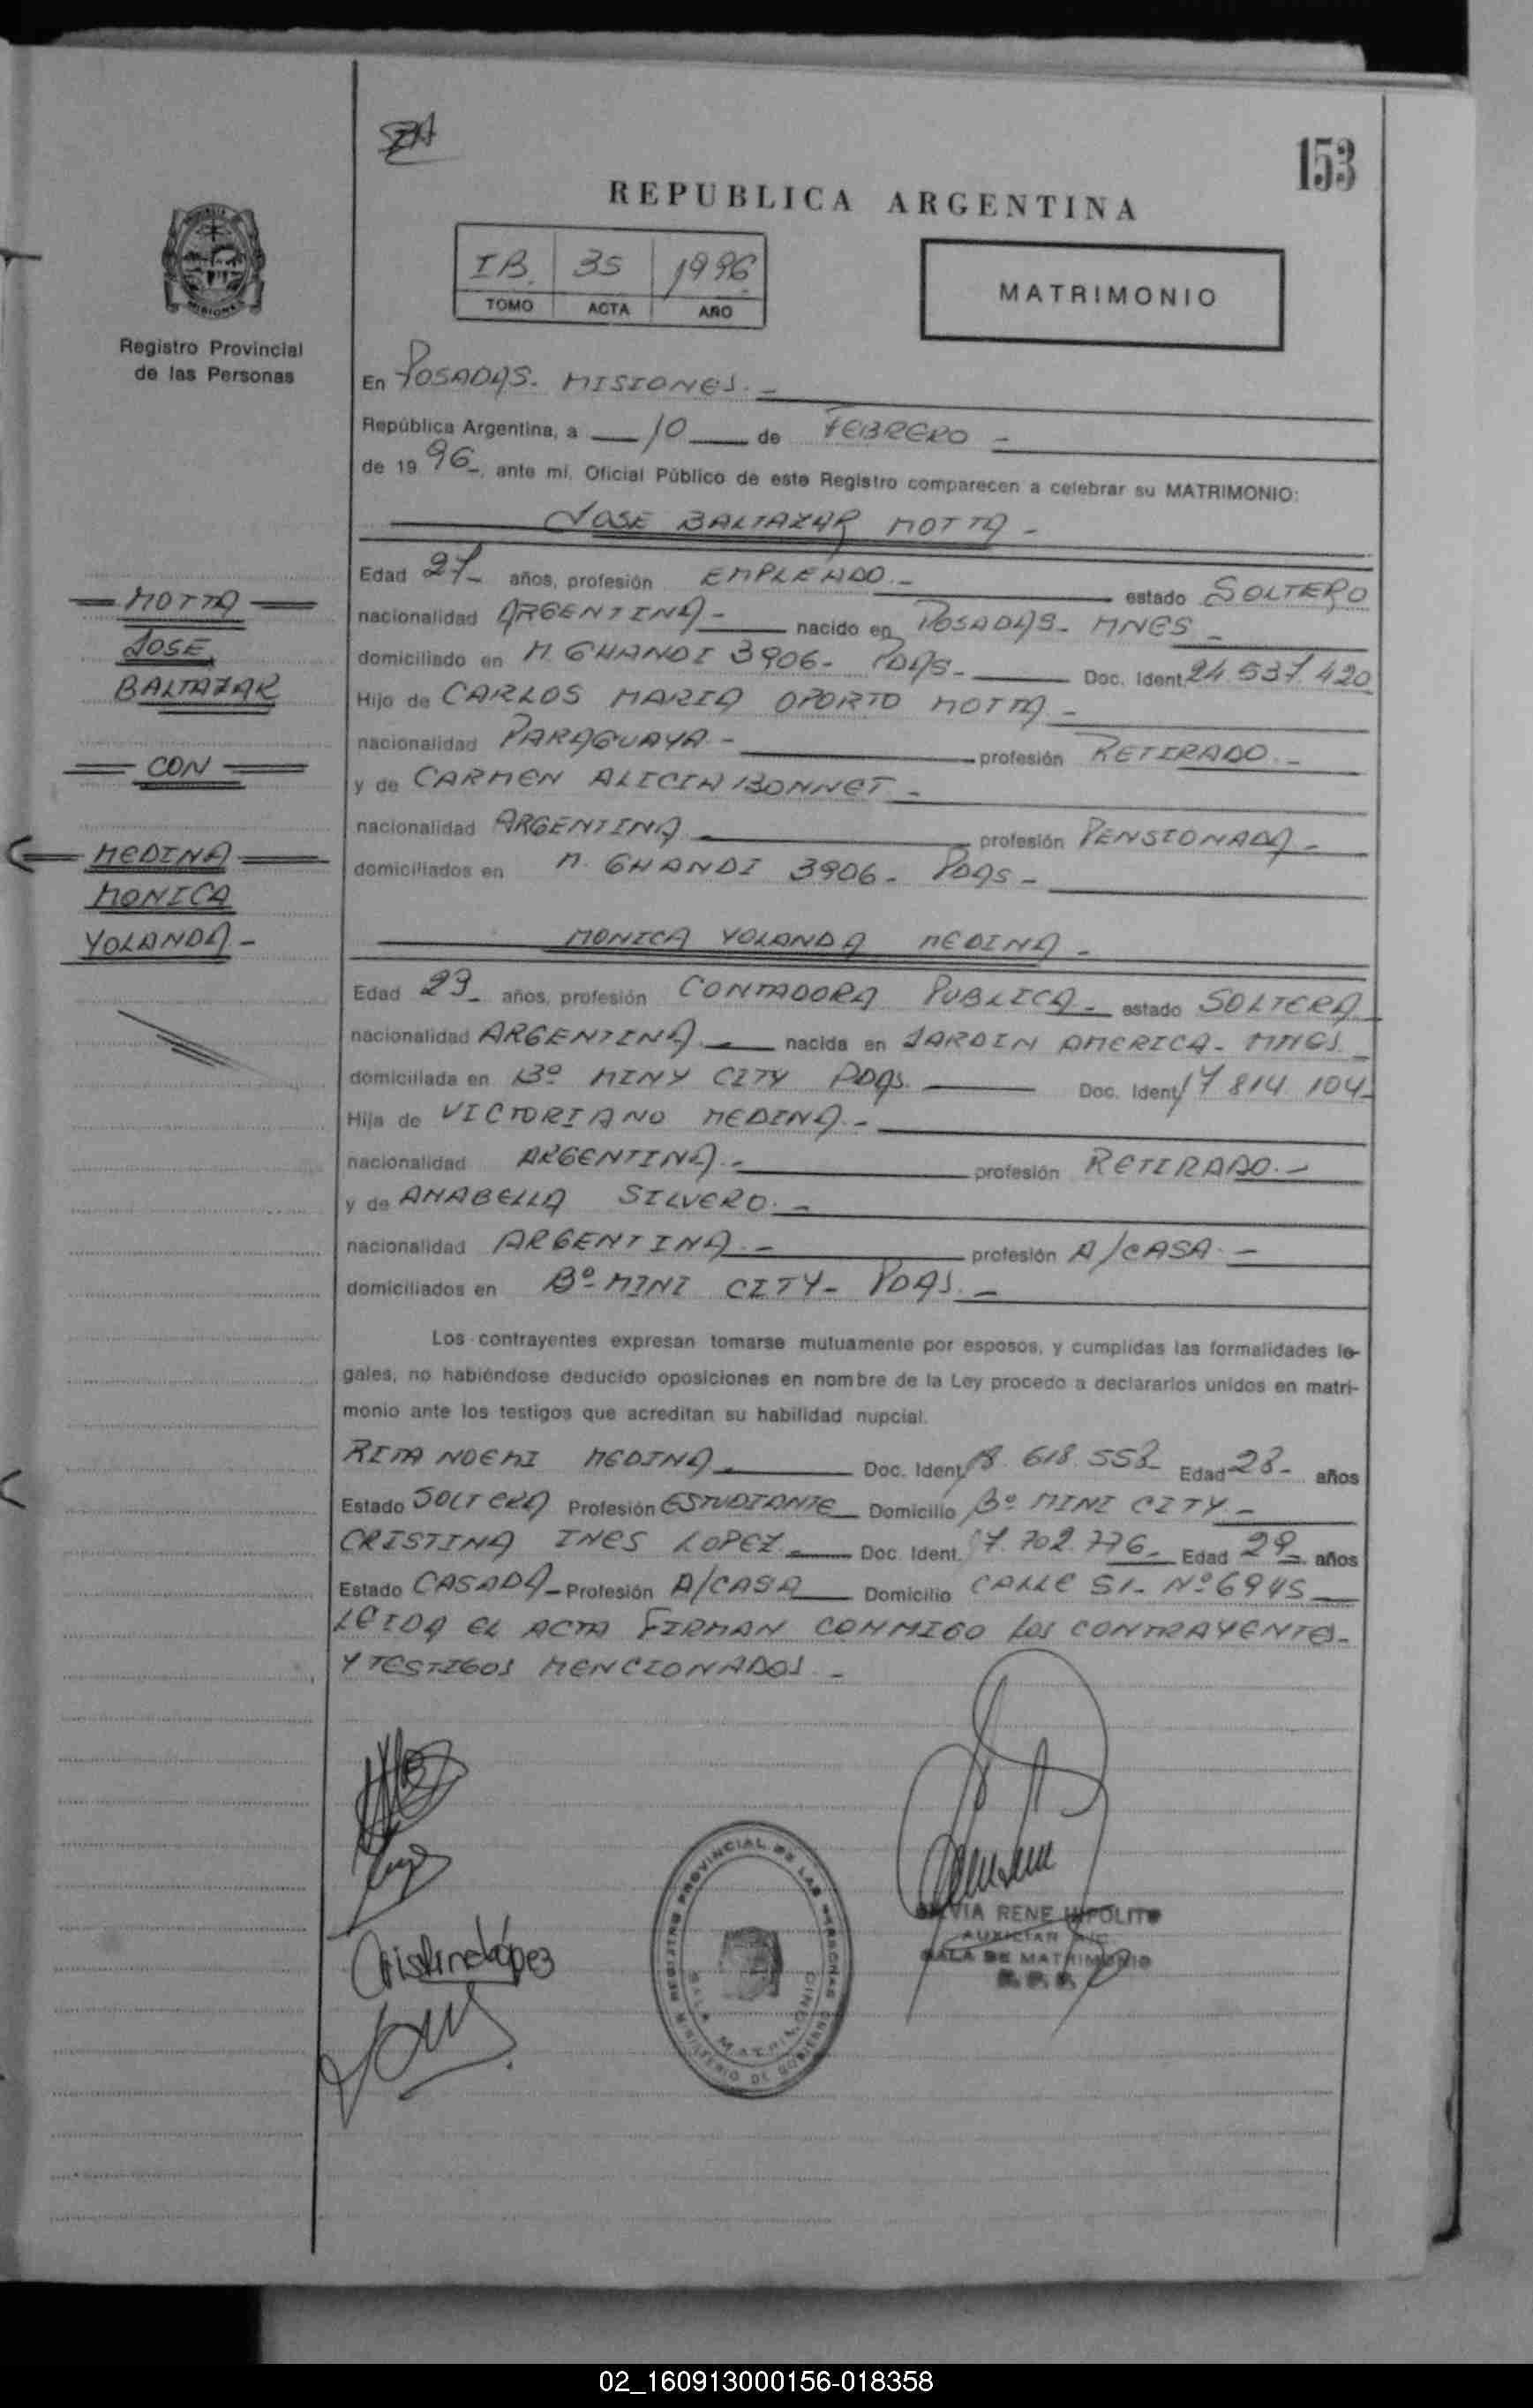 153
REPUBLICA ARGENTINA
IB. 35 1996
TOMO ACTA AÑO
MATRIMONIO
Registro Provincial
de las Personas
En POSADAS. MISIONES.-
República Argentina, a 10 de FEBRERO -
de 19 96-, ante mí, Oficial Público de este Registro comparecen a celebrar su MATRIMONIO:
JOSE BALTAZAR MOTTA -
Edad 27- años, profesión EMPLEADO.- estado SOLTERO
nacionalidad ARGENTINA- nacido en POSADAS- MNES -
domiciliado en M. GHANDI 3906- PDAS- Doc. Ident. 24.537.420
Hijo de CARLOS MARIA OPORTO MOTTA -
nacionalidad PARAGUAYA.- profesión RETIRADO.-
y de CARMEN ALICIA BONNET -
nacionalidad ARGENTINA profesión PENSIONADA-
domiciliados en M. GHANDI 3906- PDAS-
MOTTA
JOSE
BALTAZAR
CON
MEDINA
MONICA
YOLANDA-
MONICA YOLANDA MEDINA -
Edad 29- años, profesión CONTADORA PUBLICA- estado SOLTERA
nacionalidad ARGENTINA- nacida en JARDIN AMERICA- MNES -
domiciliada en Bº MINY CITY PDAS. Doc. Ident. 17 814 104-
Hija de VICTORIANO MEDINA.-
nacionalidad ARGENTINA.- profesión RETIRADO.-
y de ANABELLA SILVERO.-
nacionalidad ARGENTINA.- profesión A/CASA.-
domiciliados en Bº MINI CITY- PDAS.-
Los contrayentes expresan tomarse mutuamente por esposos, y cumplidas las formalidades le-
gales, no habiéndose deducido oposiciones en nombre de la Ley procedo a declararlos unidos en matri-
monio ante los testigos que acreditan su habilidad nupcial.
RITA NOEMI MEDINA Doc. Ident. 18.618.558 Edad 28- años
Estado SOLTERA Profesión ESTUDIANTE Domicilio Bº MINI CITY-
CRISTINA INES LOPEZ Doc. Ident. 17.702.776- Edad 29- años
Estado CASADA- Profesión A/CASA Domicilio CALLE 51- Nº 6945
LEIDA EL ACTA FIRMAN CONMIGO LOS CONTRAYENTES-
Y TESTIGOS MENCIONADOS.-
Cristina López
REGISTRO PROVINCIAL DE LAS PERSONAS
SALA MATRIMONIO
MINISTERIO DE GOBIERNO
SILVIA RENE HIPOLITO
AUXILIAR A/C
SALA DE MATRIMONIO
R.P.P.
02_160913000156-018358